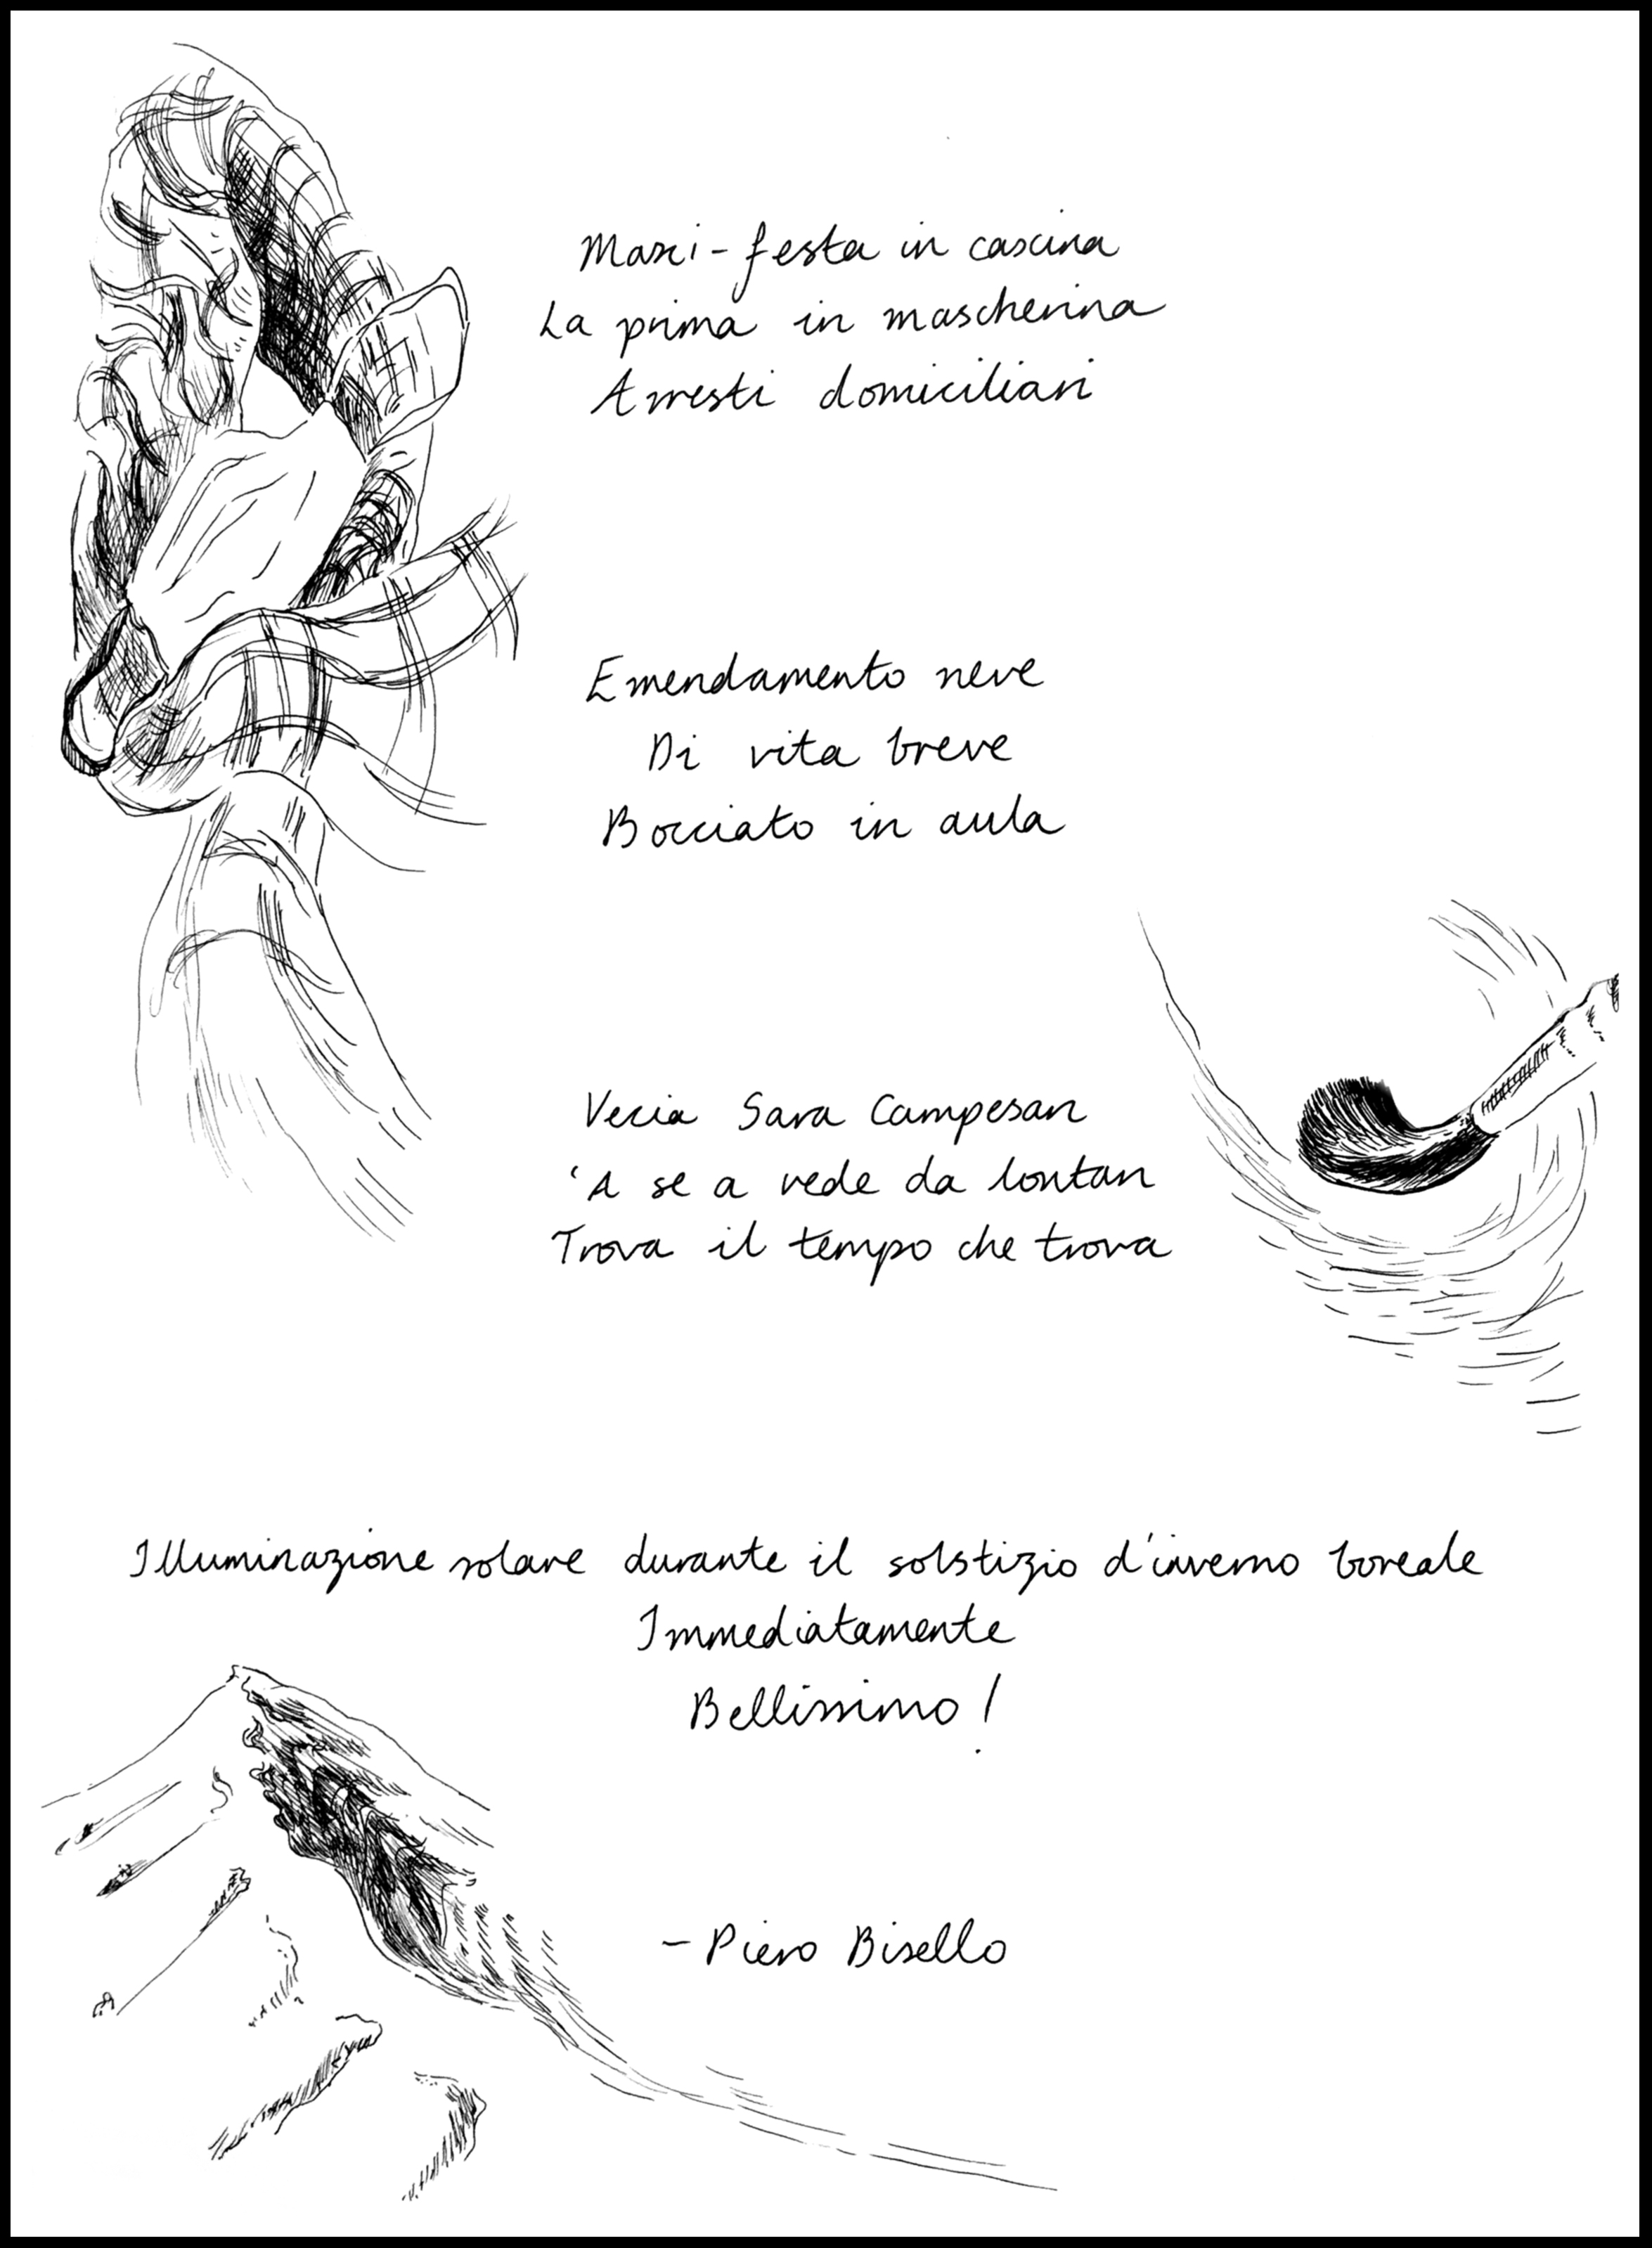 Maxi-festa in cascina
La prima in mascherina
Arresti domiciliari
Emendamento neve
Di vita breve
Bocciato in aula
Vecia Sara Campesan
'A se a vede da lontan
Trova il tempo che trova
Illuminazione solare durante il solstizio d'inverno boreale
Immediatamente
Bellissimo!
-Piero Bisello